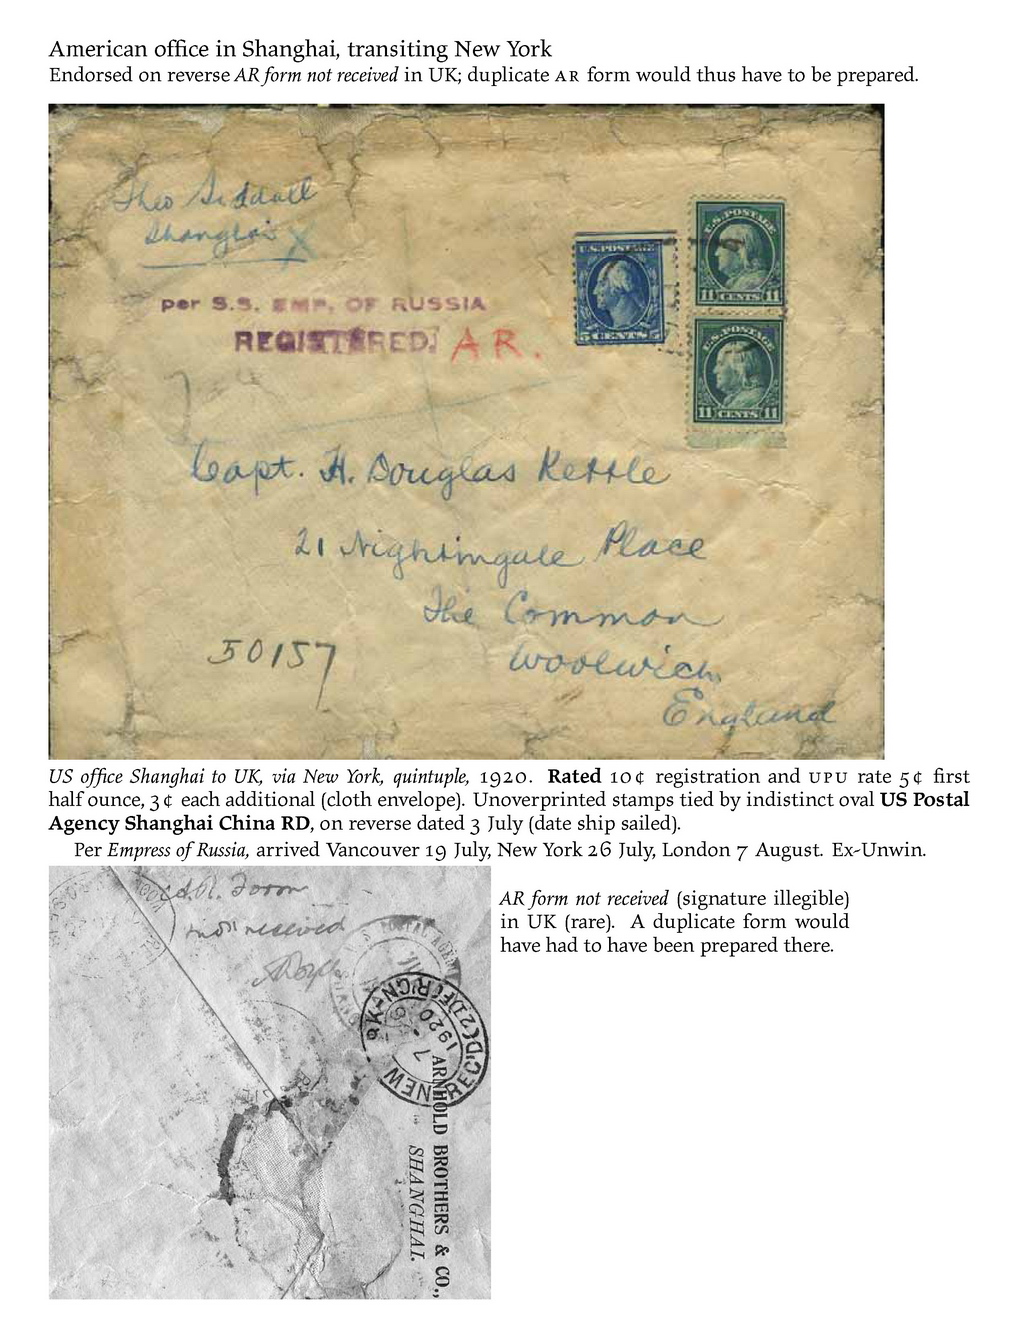 American office in Shanghai, transiting New York
Endorsed on reverse AR form not received in UK; duplicate AR form would thus have to be prepared.
Theo Siddall
Shanghai X
U.S. POSTAGE
5 CENTS 5
U.S. POSTAGE
11 CENTS 11
U.S. POSTAGE
11 CENTS 11
per S.S. EMP. OF RUSSIA
REGISTERED. AR.
Capt. H. Douglas Kettle
21 Nightingale Place
The Common
Woolwich
England
50157
US office Shanghai to UK, via New York, quintuple, 1920. Rated 10¢ registration and UPU rate 5¢ first
half ounce, 3¢ each additional (cloth envelope). Unoverprinted stamps tied by indistinct oval US Postal
Agency Shanghai China RD, on reverse dated 3 July (date ship sailed).
Per Empress of Russia, arrived Vancouver 19 July, New York 26 July, London 7 August. Ex-Unwin.
A.R. Form
not received
POSTAL AGEN
NEW
REC'D (2D) F'R'GN
1920
ARNHOLD BROTHERS & CO.,
SHANGHAI.
AR form not received (signature illegible)
in UK (rare). A duplicate form would
have had to have been prepared there.